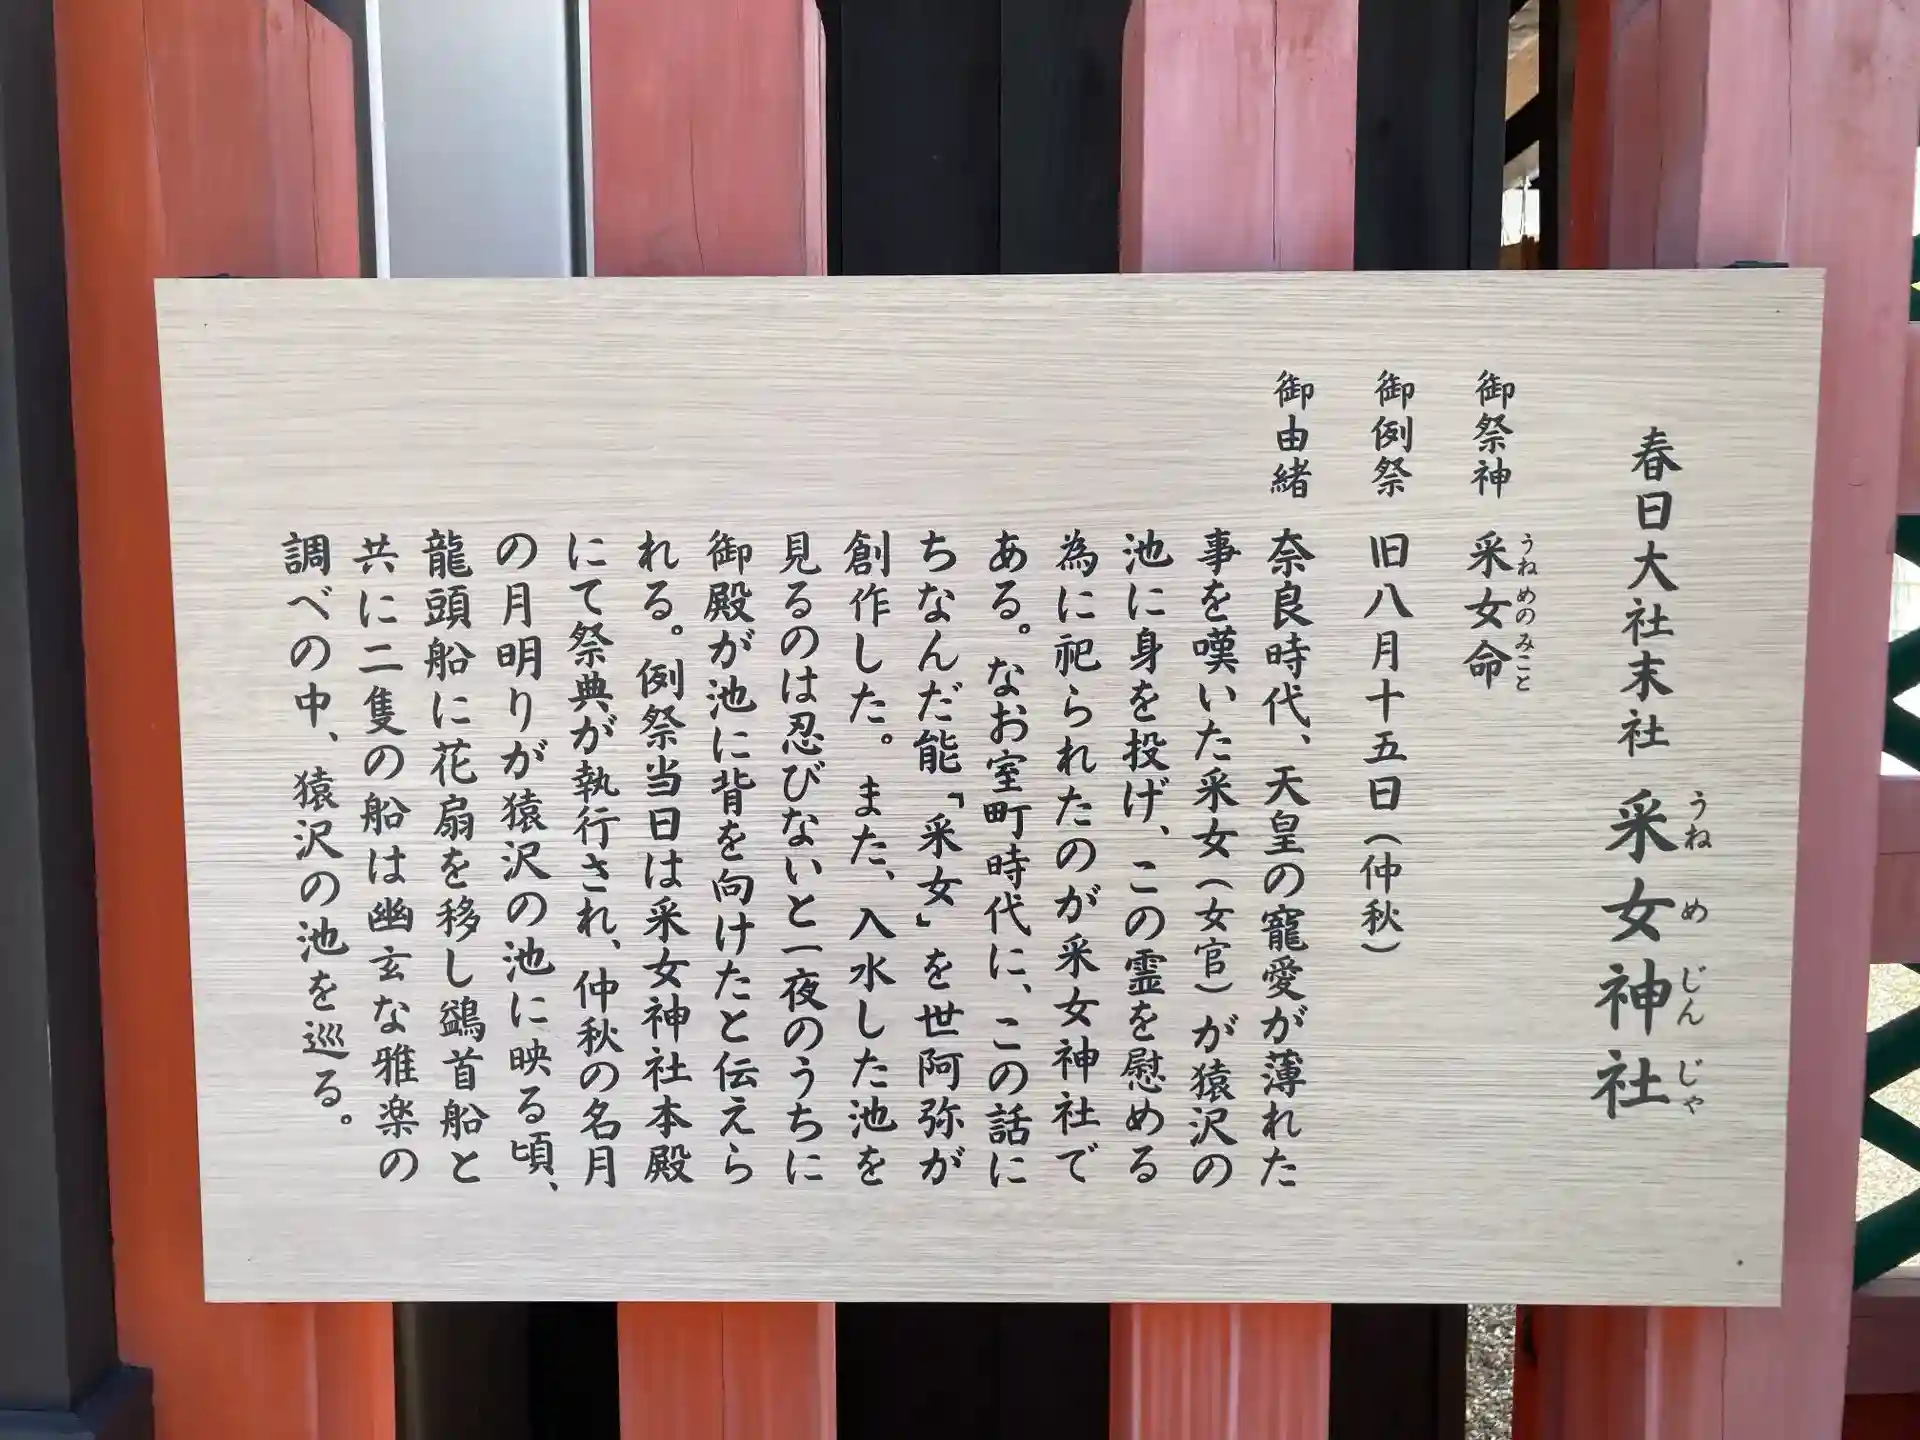 春日大社末社 采女神社
うね め じん じゃ
御祭神 采女命
うねめのみこと
御例祭 旧八月十五日(仲秋)
御由緒 奈良時代、天皇の寵愛が薄れた
事を嘆いた采女(女官)が猿沢の
池に身を投げ、この霊を慰める
為に祀られたのが采女神社で
ある。なお室町時代に、この話に
ちなんだ能「采女」を世阿弥が
創作した。また、入水した池を
見るのは忍びないと一夜のうちに
御殿が池に背を向けたと伝えら
れる。例祭当日は采女神社本殿
にて祭典が執行され、仲秋の名月
の月明りが猿沢の池に映る頃、
龍頭船に花扇を移し鷁首船と
共に二隻の船は幽玄な雅楽の
調べの中、猿沢の池を巡る。